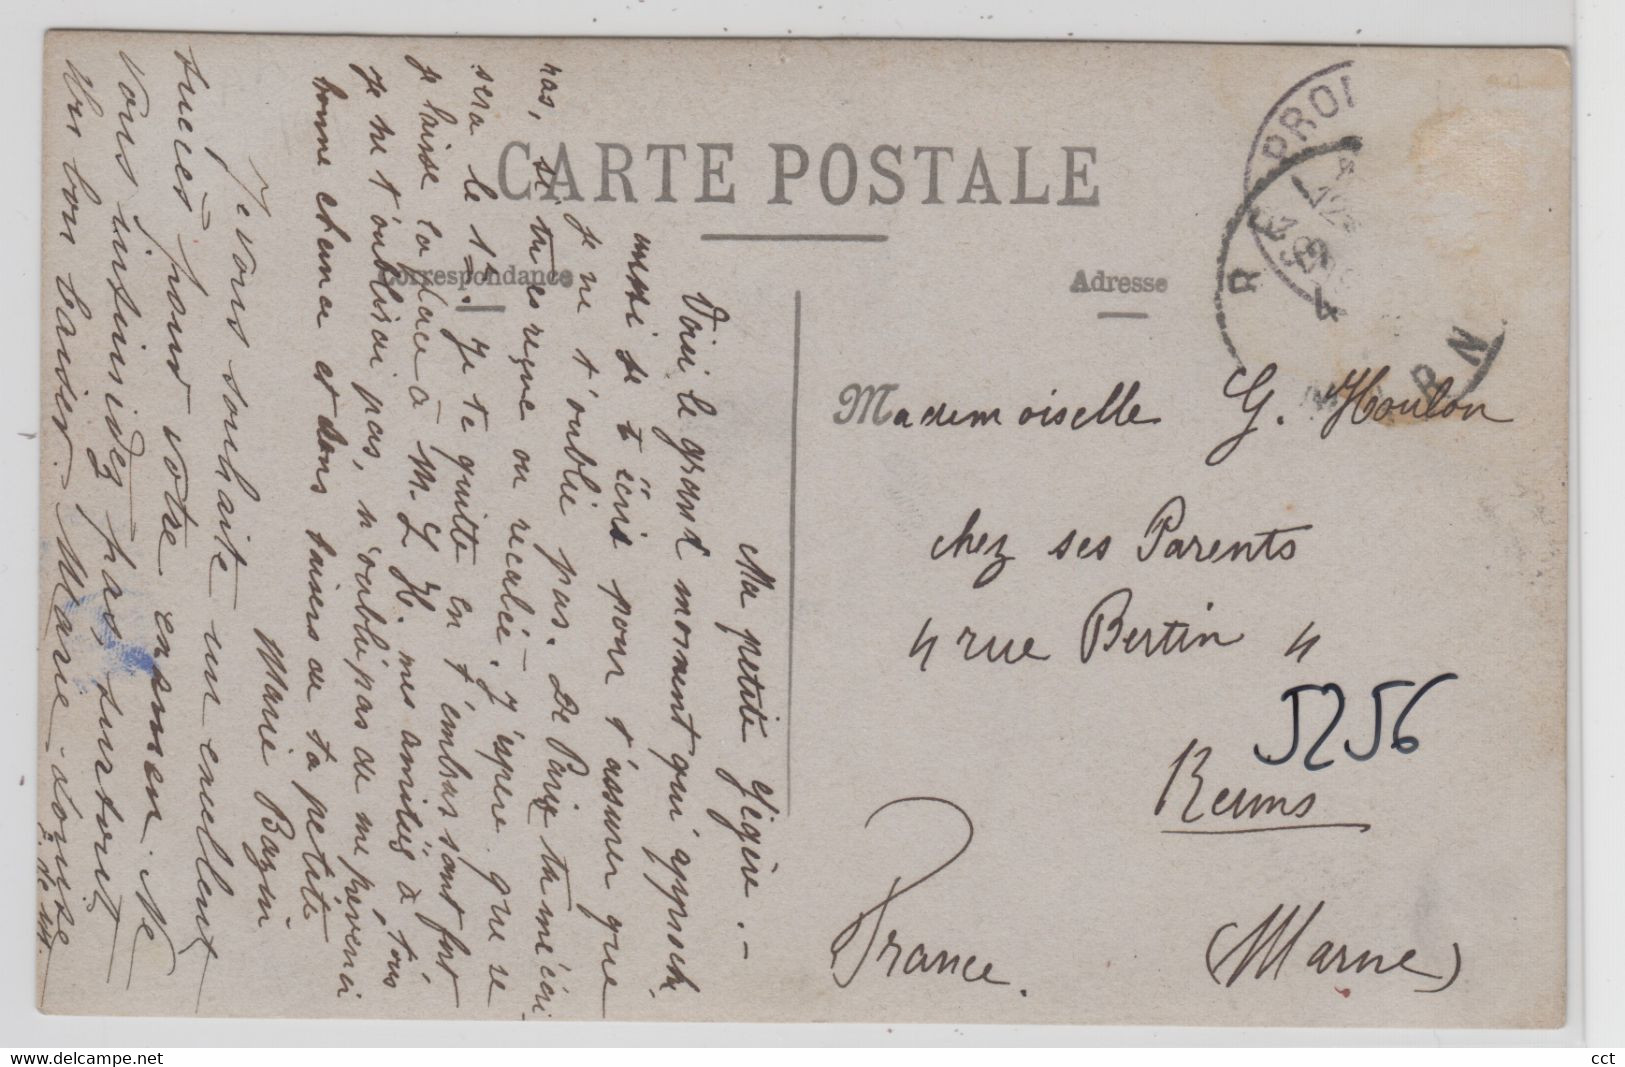 CARTE POSTALE
Correspondance
Adresse
Ma petite Ségère. -
Voici le grand moment qui approch
aussi je t'écris pour t'assurer que
je ne t'oublie pas. De Paris tu m'écri
ras, si tu es reçue ou recalée. J'espère que ce
sera le 1er. Je te quitte en t'embrassant fort
je laisse la place à M. L H. mes amitiés à tous
Je ne t'oublierai pas, n'oublie pas de me prévenir
bonne chance et bons baisers de ta petite
Marie Bazin
Je vous souhaite un excellent
succès pour votre examen. Ne
vous intimidez pas surtout
Un bon baiser. Marie-Louise
Mademoiselle G. Houlon
chez ses Parents
4 rue Bertin 4
5256
Reims
(Marne)
France.
PROV
REIMS
delcampe.net
cct